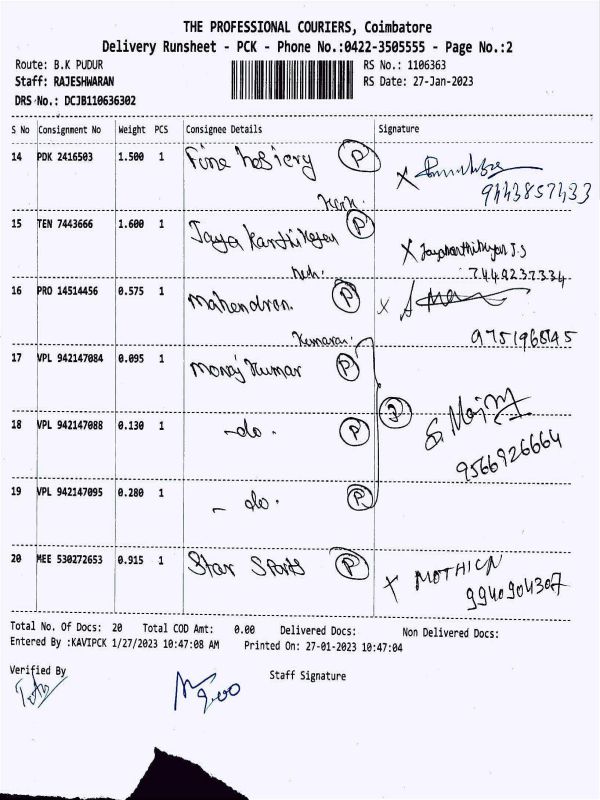 THE PROFESSIONAL COURIERS, Coimbatore
Delivery Runsheet - PCK - Phone No.:0422-3505555 - Page No.:2
Route: B.K PUDUR RS No.: 1106363
Staff: RAJESHWARAN RS Date: 27-Jan-2023
DRS No.: DCJB110636302
S No Consignment No Weight PCS Consignee Details Signature
14 PDK 2416503 1.500 1 Fine Hosiery P X
9443857433
15 TEN 7443666 1.600 1 Jaya Karthikeyan P X Jayakarthikeyan J.S
7449237334
16 PRO 14514456 0.575 1 Mahendran. P X
9751968145
Kumaran.
17 VPL 942147084 0.095 1 Monoj Kumar P
18 VPL 942147088 0.130 1 -do. P 3
9566926664
19 VPL 942147095 0.280 1 - do. P
20 MEE 530272653 0.915 1 Star Sports P X
9940904307
Total No. Of Docs: 20 Total COD Amt: 0.00 Delivered Docs: Non Delivered Docs:
Entered By :KAVIPCK 1/27/2023 10:47:08 AM Printed On: 27-01-2023 10:47:04
Verified By Staff Signature